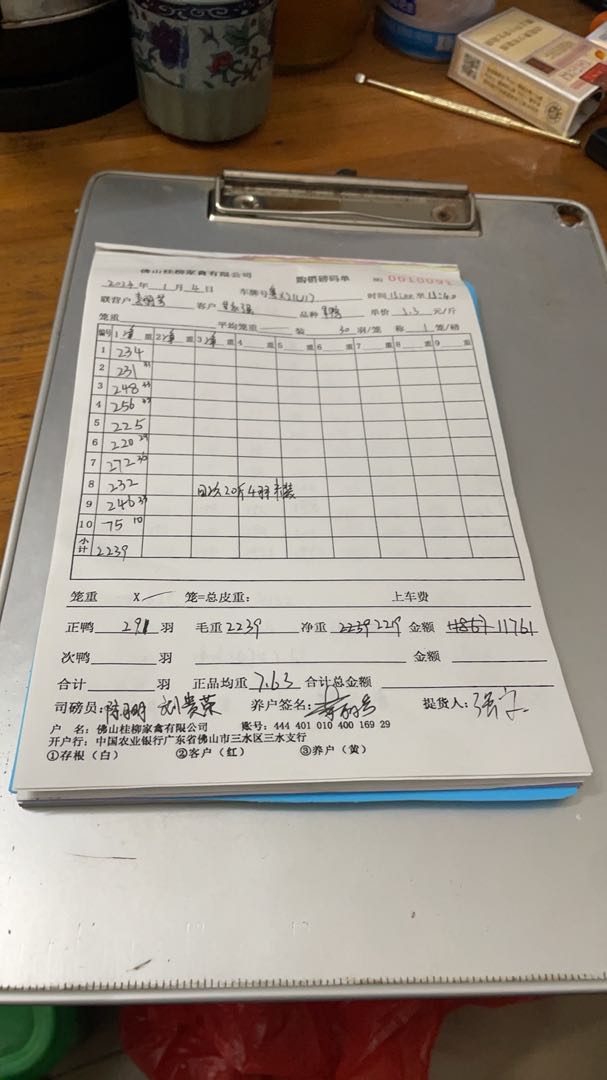 佛山桂柳家禽有限公司 购销磅码单 NO 0010091
2024 年 1 月 4 日 车牌号 时间 至
联营户 客户 品种 单价 5.3 元/斤
笼重 平均笼重 装 30 羽/笼 称 1 笼/磅
编号 1 净 重 2 净 重 3 净 重 4 重 5 重 6 重 7 重 8 重 9 重
1 234
2 231 31
3 248 33
4 256 33
5 225
6 220 29
7 272 36
8 232
9 246 33
10 75 10
小计 2239
笼重 X 笼=总皮重: 上车费
正鸭 291 羽 毛重 2239 净重 2239 2219 金额 11761
次鸭 羽 金额
合计 羽 正品均重 7.63 合计总金额
司磅员: 刘贵荣 养户签名: 提货人:
户 名: 佛山桂柳家禽有限公司 账号: 444 401 010 400 169 29
开户行: 中国农业银行广东省佛山市三水区三水支行
①存根(白) ②客户(红) ③养户(黄)